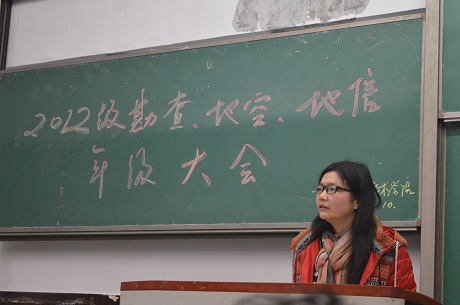 2022级勘查、地空、地信
年级大会
术学院
10.